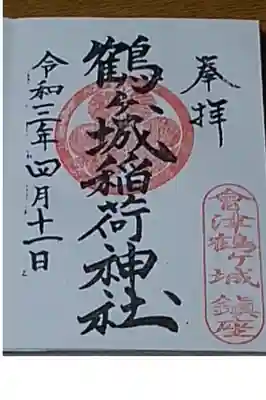 奉拝
鶴ヶ城稲荷神社
令和三年四月十一日
會津鶴ヶ城鎮座